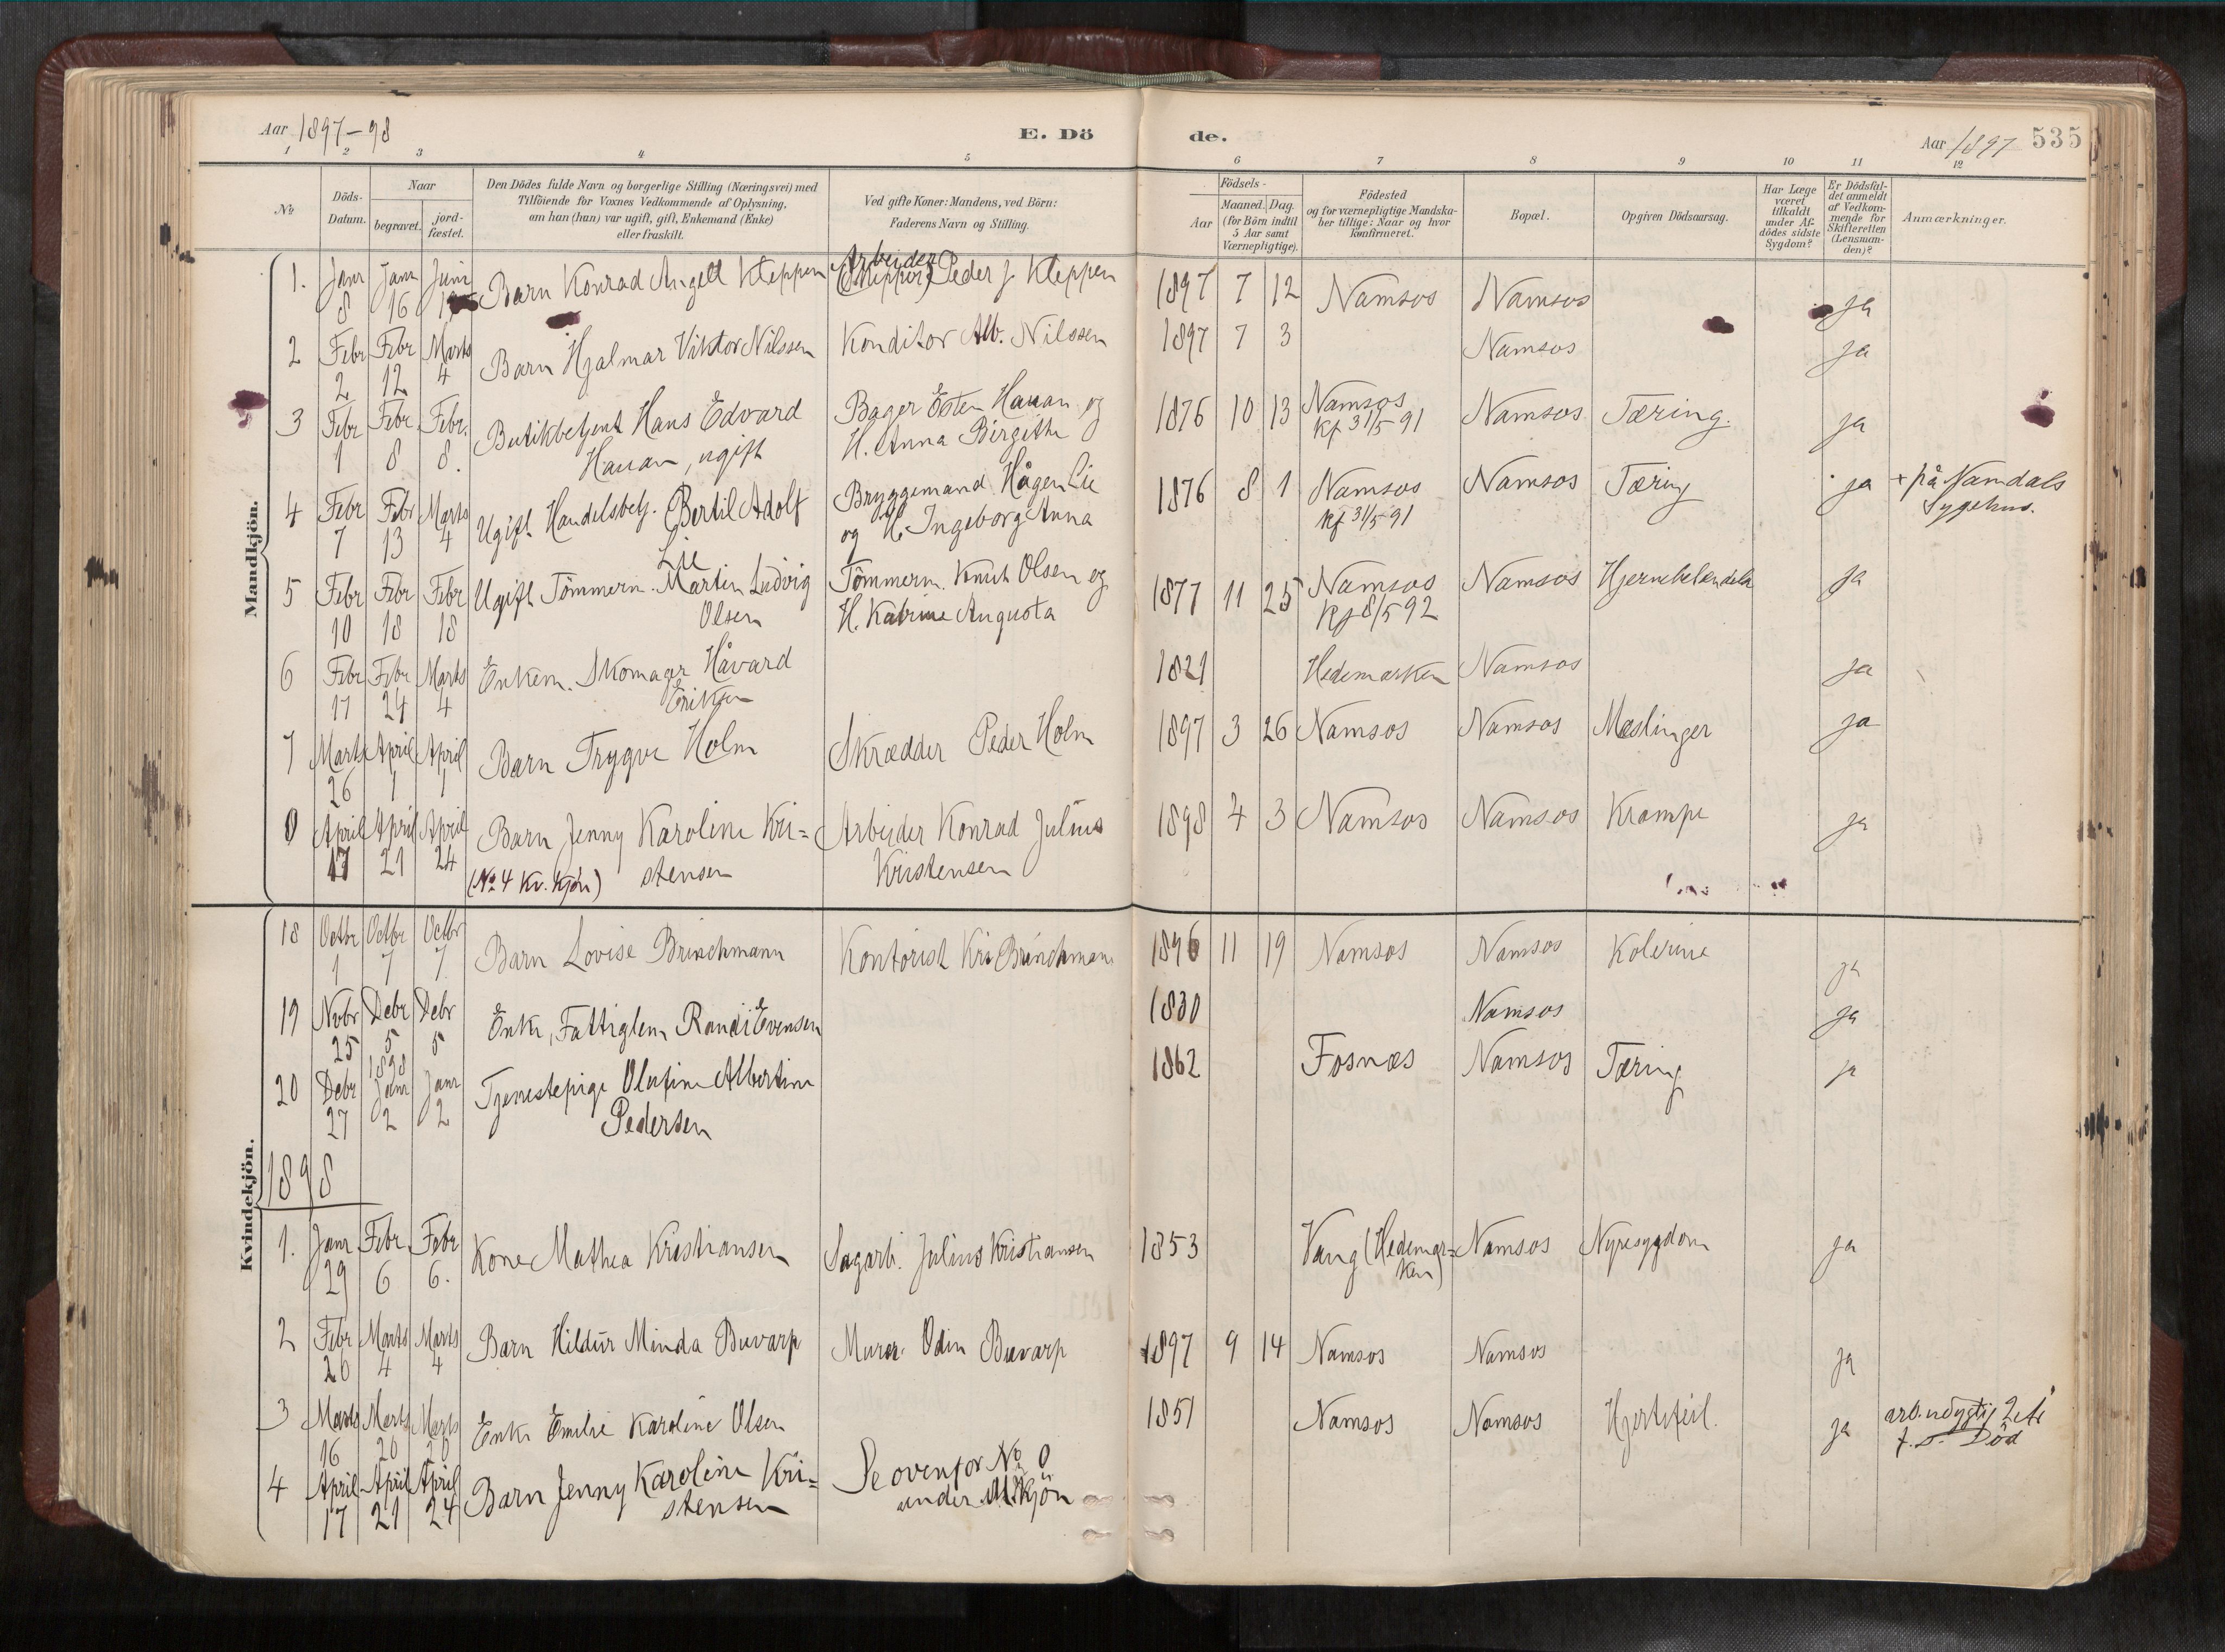 Aar 1897-98
E. Dö
de.
Aar 1897
535
1 2 3 4 5 6 7 8 9 10 11 12
No
Döds-Datum.
Naar
begravet.
jord-fæstet.
Den Dödes fulde Navn og borgerlige Stilling (Næringsvei) med
Tilföiende for Voxnes Vedkommende af Oplysning,
om han (hun) var ugift, gift, Enkemand (Enke)
eller fraskilt.
Ved gifte Koner: Mandens, ved Börn:
Faderens Navn og Stilling.
Födsels-
Aar
Maaned. Dag.
(for Börn indtil
5 Aar samt
Værnepligtige).
Födested
og for værnepligtige Mandska-
ber tillige: Naar og hvor
konfirmeret.
Bopæl.
Opgiven Dödsaarsag.
Har Læge
været
tilkaldt
under Af-
dödes sidste
Sygdom?
Er Dödsfal-
det anmeldt
af Vedkom-
mende for
Skifteretten
(Lensman-
den)?
Anmærkninger.
Mandkjön.
1. Janr Janr Juni Barn Konrad Angell Kleppen Arbeider
8 16 (Skipper) Peder J Kleppen 1897 7 12 Namsos Namsos ja
2 Febr Febr Marts Barn Hjalmar Viktor Nilssen Konditor Alb. Nilssen 1897 7 3 Namsos ja
2 12 4
3 Febr Febr Febr. Butikbetjent Hans Edvard Bager Esten Hauan og 1876 10 13 Namsos Namsos Tæring. ja
1 8 8. Hauan, ugift H. Anna Birgithe kf 31/5 91
4 Febr Febr Marts Ugift Handelsbetj. Bertil Adolf Bryggemand Hågen Lie 1876 8 1 Namsos Namsos Tæring ja + på Namdals
7 13 4 Lie og H. Ingeborg Anna kf 31/5 91 Sygehus.
5 Febr Febr Febr Ugift Tömmerm. Martin Ludvig Tömmerm. Knut Olsen og 1877 11 25 Namsos Namsos Hjernebetændelse ja
10 18 18 Olsen H. Katrine Augusta kf 8/5 92
6 Febr Febr Marts Enkem. Skomager Håvard 1821 Hedemarken Namsos ja
17 24 4 Eriksen
7 Marts April April Barn Trygve Holm Skrædder Peder Holm 1897 3 26 Namsos Namsos Mæslinger ja
26 1 1
0 April April April Barn Jenny Karoline Kri= Arbeider Konrad Julius 1898 4 3 Namsos Namsos Krampe ja
17 21 24 (No 4 Kv. Kjön) stensen Kristensen
Kvindekjön.
18 Octbr Octbr Octbr Barn Lovise Brinchmann Kontorist Kri Brinchmann 1896 11 19 Namsos Namsos Kolerine ja
1 7 7.
19 Novbr Debr Debr Enke, Fattiglem Randi Evensen 1830 Namsos ja
25 5 5
1898
20 Debr Janr Janr Tjenestepige Olufine Albertine 1862 Fosnæs Namsos Tæring ja
27 2 2 Pedersen
1898
1. Janr Febr Febr Kone Mathea Kristiansen Sagarb. Julius Kristiansen 1853 Vang (Hedemar= Namsos Nyresygdom ja
29 6 6. ken)
2 Febr Marts Marts Barn Hildur Minda Buvarp Murer Odin Buvarp 1897 9 14 Namsos Namsos ja
20 4 4
3 Marts Marts Marts Enke Emilie Karoline Olsen 1851 Namsos Namsos Hjertefeil. ja arb.udygtig
16 20 20 f. s. Död
4 April April April Barn Jenny Karoline Kri= Se ovenfor No 0
17 21 24 stensen under M.kjön